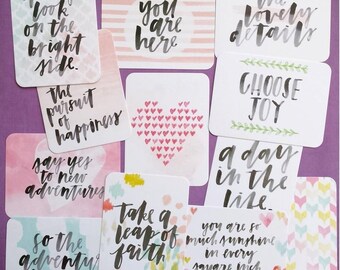 look
on the
bright
side.
you
are
here
the lovely
details
the
pursuit
of
happiness
CHOOSE
JOY
say yes
to new
adventures
a day
in the
life.
take a
leap of
faith
so the
adventure
you are so
much sunshine
in every
square